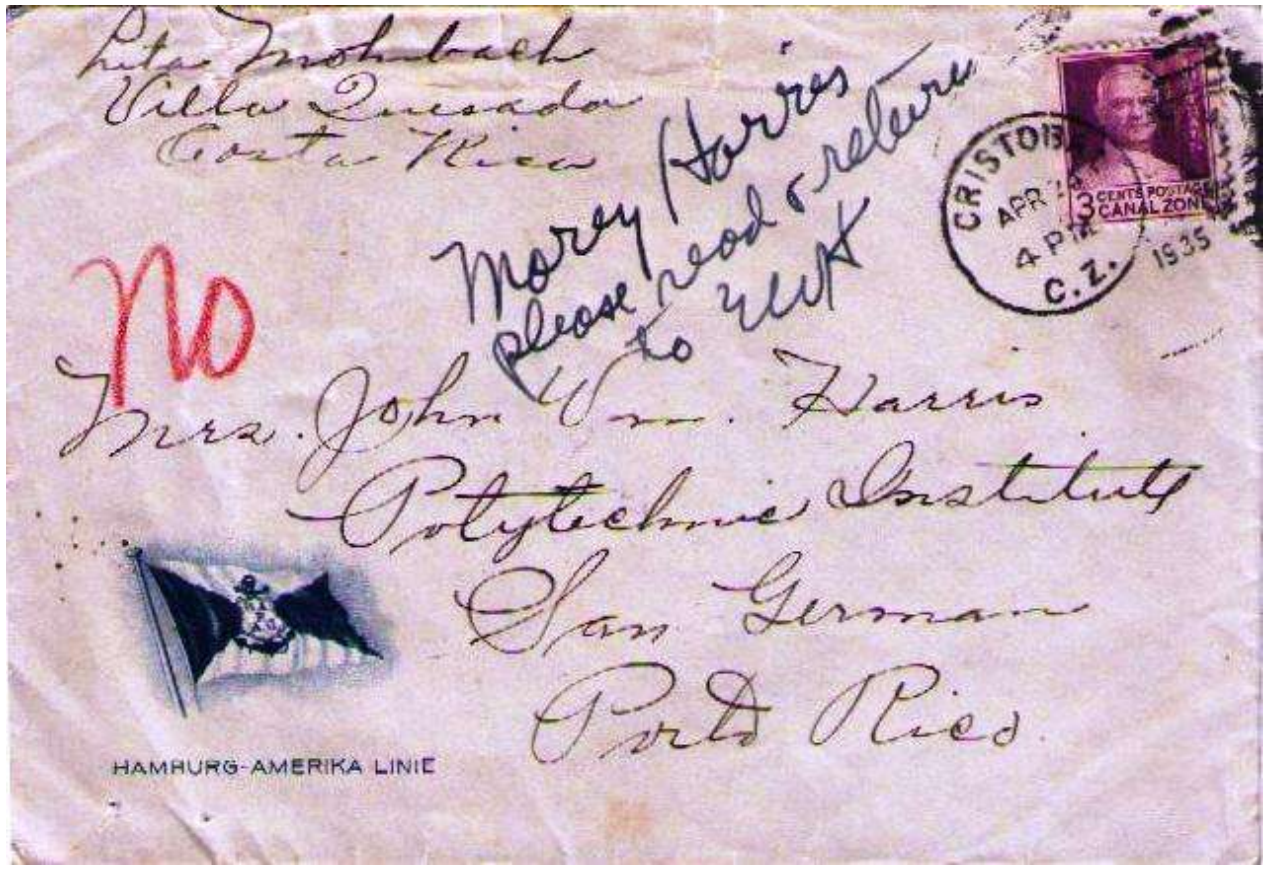 Lita Mohnbach
Villa Quesada
Costa Rica
Morey Harris
please read & return
to
No
CRISTOB
APR
4 PM
C. Z.
1935
3 CENTS POSTAGE
CANAL ZONE
Mrs. John Wm. Harris
Polytechnic Institute
San German
Porto Rico
HAMBURG-AMERIKA LINIE